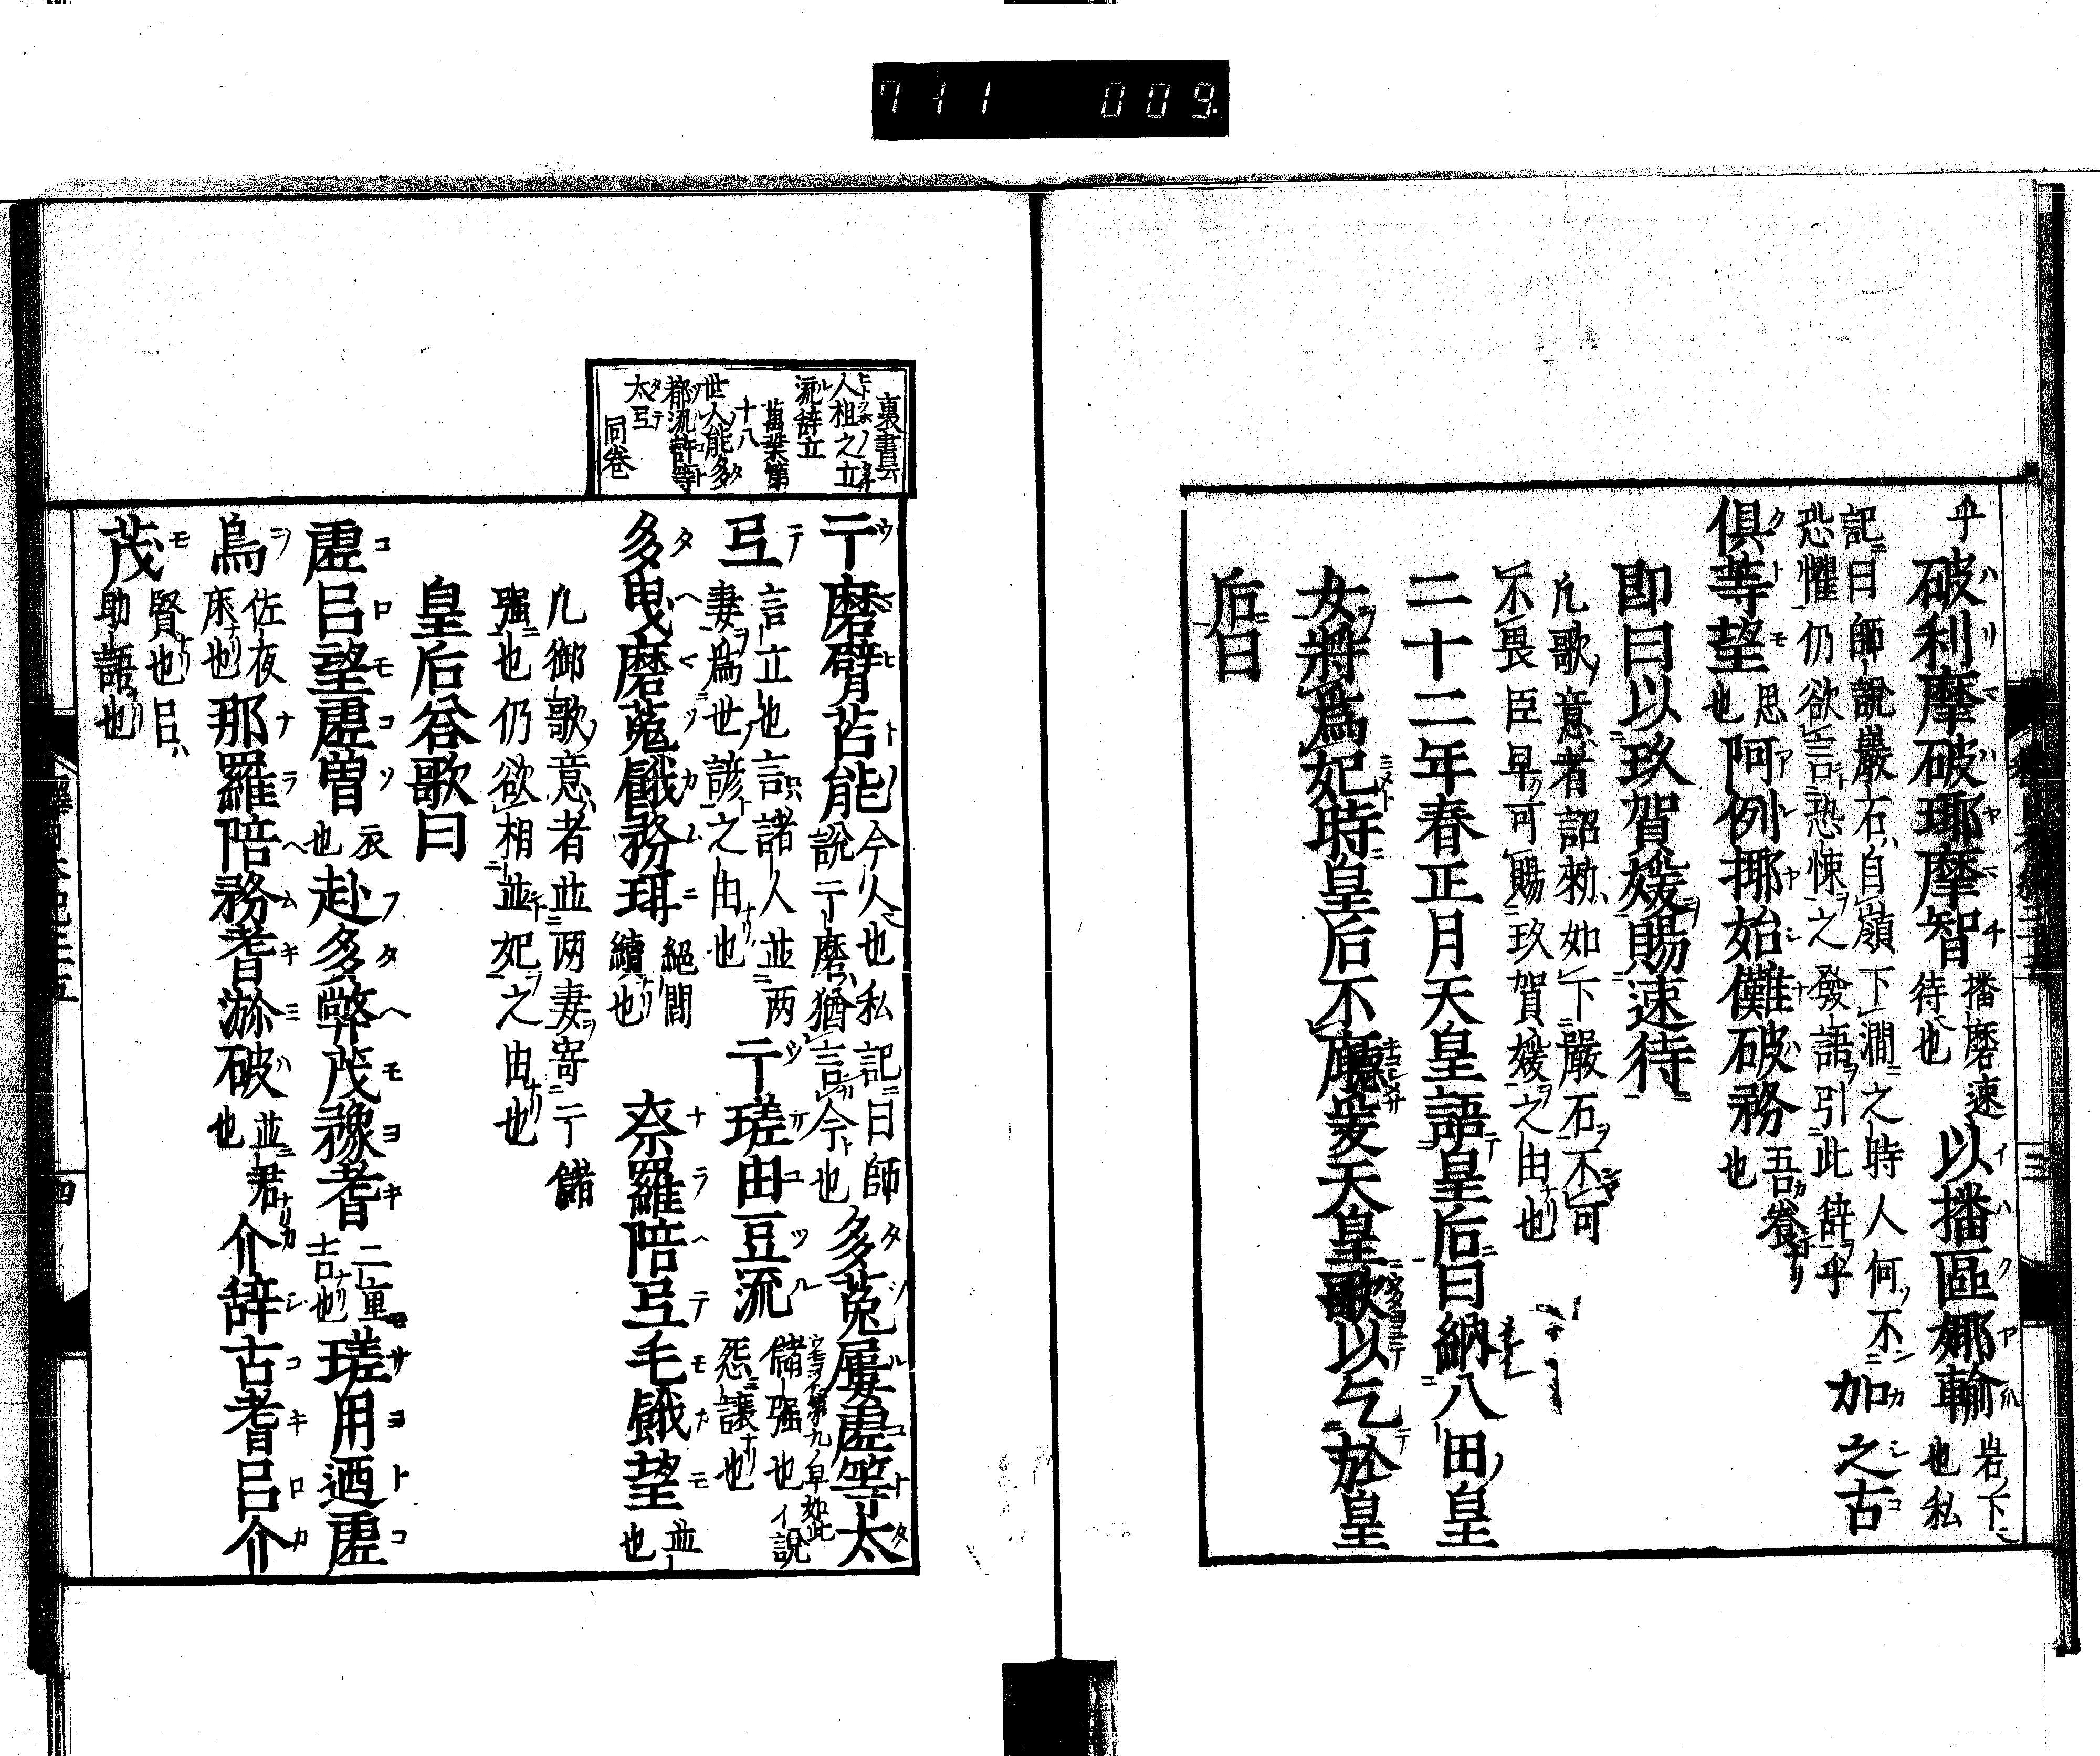 711 009
乎破利摩破揶摩智播磨速待也以播區娜輸岩下也私
記曰師說巖石自嶺下澗之時人何不
恐懼仍欲言恐悚之發語引此辭乎加之古
俱等望思也阿例揶始儺破務吾養也
即曰以玖賀媛賜速待
凡歌意者詔勅如下嚴石不可
不畏臣早可賜玖賀媛之由也
二十二年春正月天皇語皇后曰納八田皇
女將爲妃時皇后不聽爰天皇歌以乞於皇
后曰
裏書云
人祖之立
流辞立
萬葉第
十八
世人能多
都流許等
太弖
同卷
于磨臂苫能今人也私記曰師說于磨猶言今也多菟屢虛等太
弖言立也言諸人並两妻爲世諺之由也于瑳由豆流儲强也イ說怨讓也
多曳磨菟餓務珥絕間續也奈羅陪弖毛餓望並也
凡御歌意者並两妻寄于儲
强也仍欲相並妃之由也
皇后答歌曰
虛呂望虛曽衣也赴多弊茂豫耆二重吉也瑳用廼虛
烏佐夜床也那羅陪務耆瀰破並君也介辞古耆呂介
茂賢也呂助語也